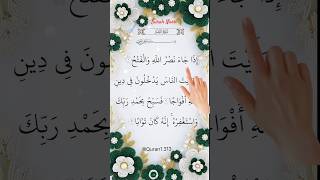 Surah Nasr
إِذَا جَاءَ نَصْرُ اللَّهِ وَالْفَتْحُ
يْتَ النَّاسَ يَدْخُلُونَ فِي دِينِ
هِ أَفْوَاجًا فَسَبِّحْ بِحَمْدِ رَبِّكَ
وَاسْتَغْفِرْهُ إِنَّهُ كَانَ تَوَّابًا
@Quran1313